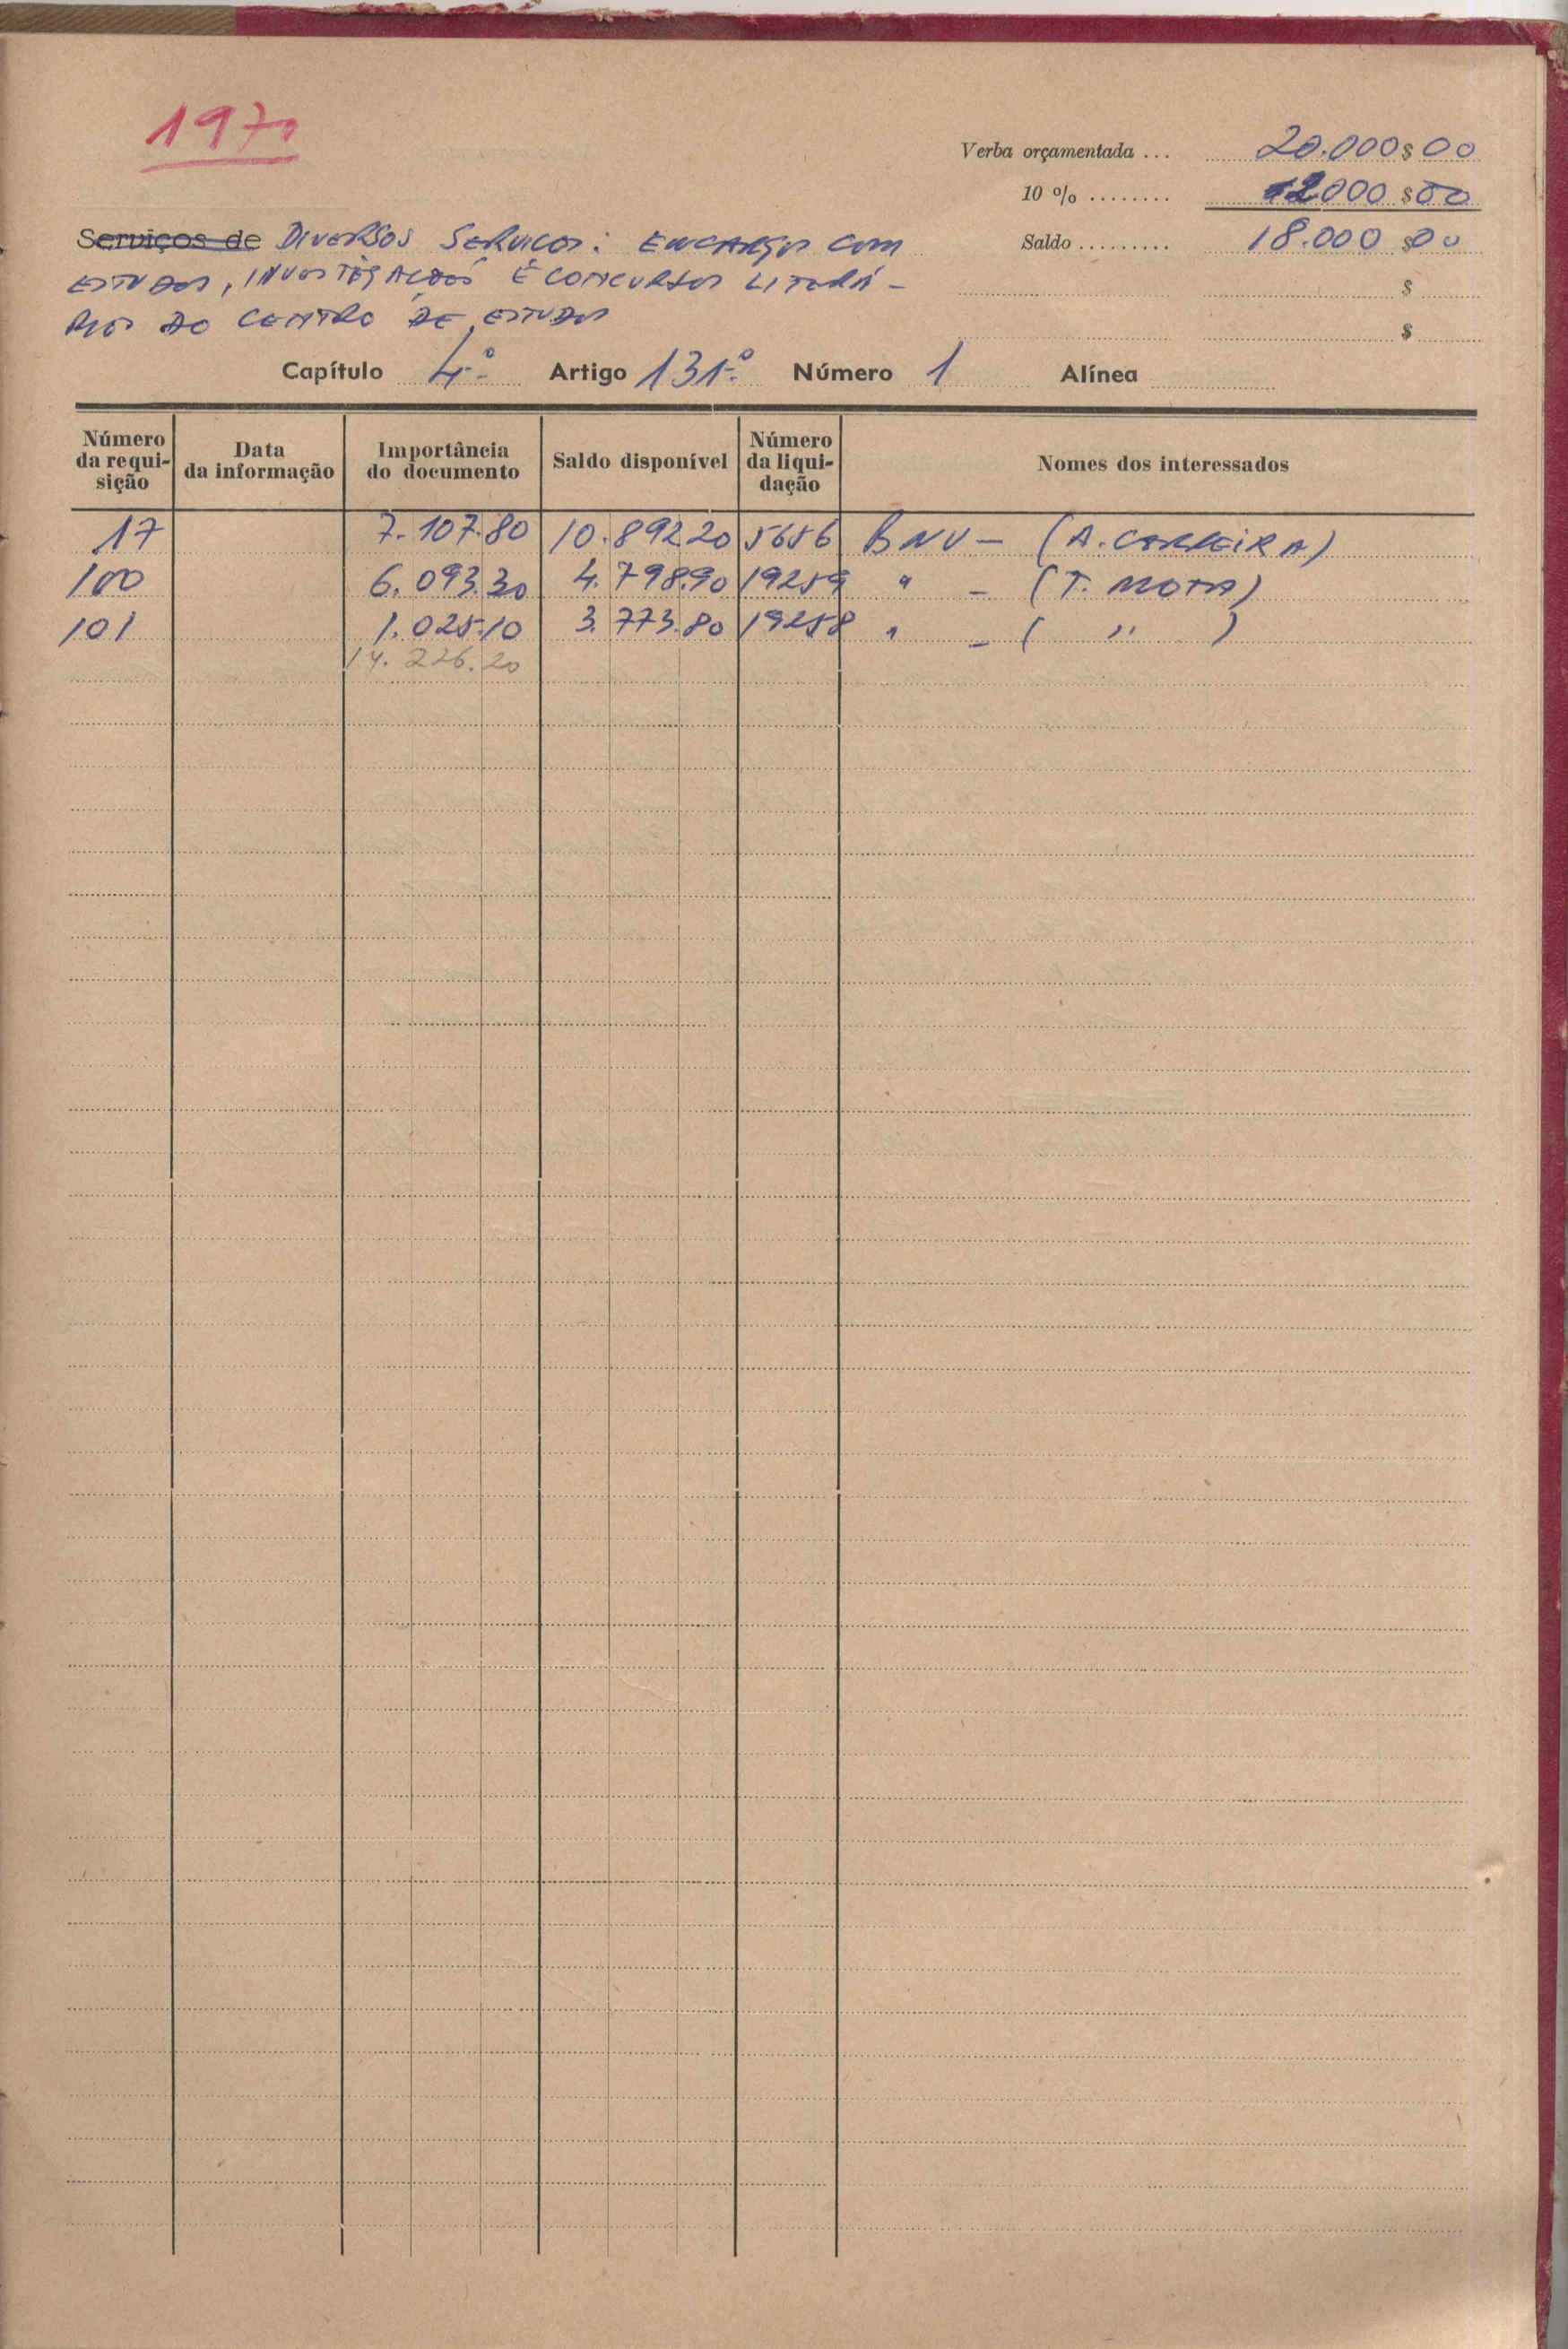 1970
Verba orçamentada ... 20.000$00
10 % ........ 2000$00
Serviços de DIVERSOS SERVIÇOS: ENCARGOS COM
Saldo ......... 18.000$00
ESTUDOS, INVESTIGAÇÕES E CONCURSOS LITERÁ-
$
RIOS DO CENTRO DE ESTUDOS
$
Capítulo 4.º Artigo 131.º Número 1 Alínea
Número da requi-sição Data da informação Importância do documento Saldo disponível Número da liqui-dação Nomes dos interessados
17 7.107.80 10.892.20 5656 BNU - (A. CARREIRA)
100 6.093.30 4.798.90 19259 " - (T. MOTA)
101 1.025.10 3.773.80 19258 " - ( " )
14.226.20